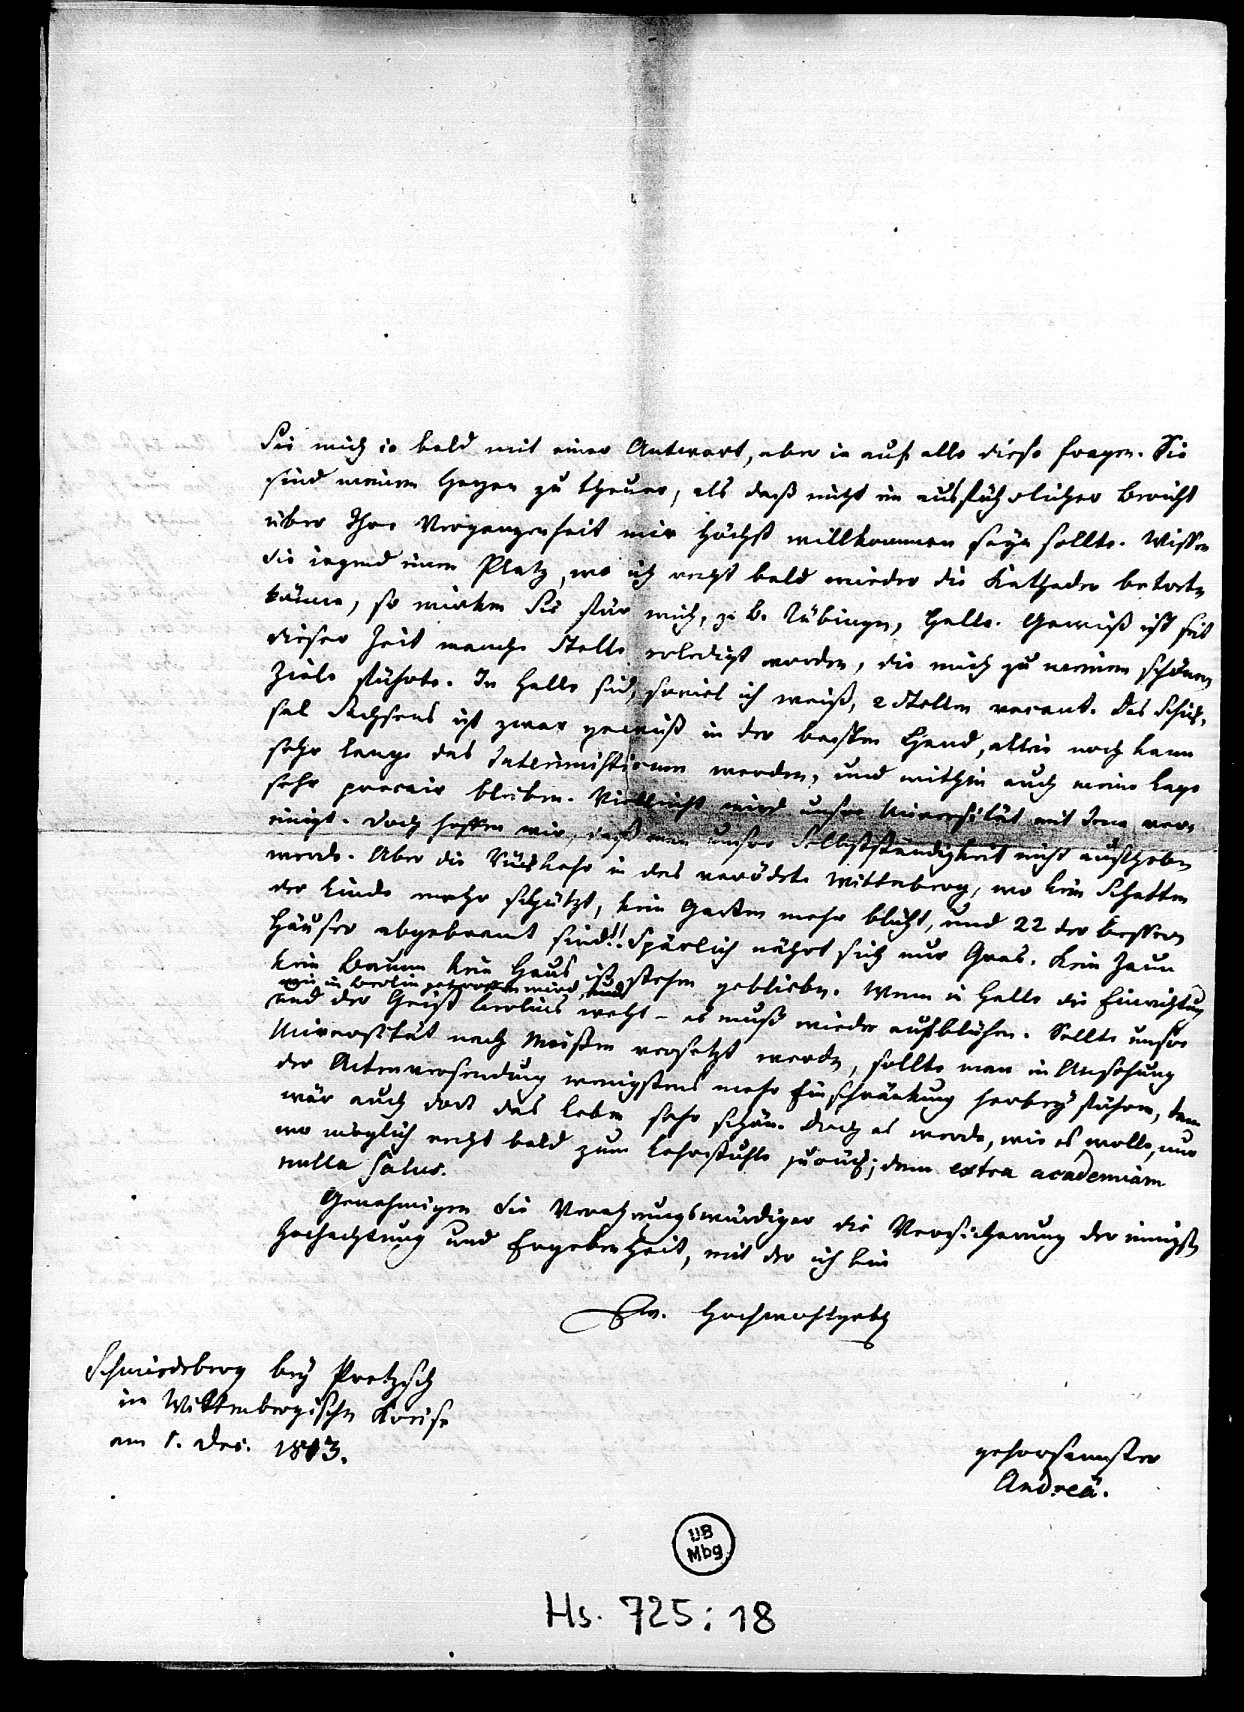 Sie mich so bald mit einer Antwort, aber ja auf alle diese Fragen. Sie
sind meinem Herzen zu theuer, als daß nicht ein ausführlicher Bericht
über Ihre Vergangenheit mir höchst willkommen seyn sollte. Wissen
Sie irgend einen Platz, wo ich recht bald wieder die Katheder betreten
könne, so wirken Sie für mich, z. B. Tübingen, Halle. Gewiß ist seit
dieser Zeit manche Stelle erledigt worden, die mich zu meinem schönen
Ziele führte. In Halle sind, soviel ich weiß, 2 Stellen vacant. Das Schick-
sal Sachsens ist zwar gewiß in der besten Hand, allein noch kann
sehr lange das Interimisticum werden, und mithin auch meine Lage
sehr precair bleiben. Vielleicht wird unsre Universität mit Jena ver-
einigt. Doch hoffen wir, daß man unsre Selbstständigkeit nicht aufheben
werde. Aber die Rückkehr in das verödete Wittenberg, wo kein Schatten
der Linde mehr schützt, kein Garten mehr blüht, und 22 der bessern
Häuser abgebrannt sind!! Spärlich nährt sich nur Gras. Kein Zaun
kein Baum kein Haus ist stehen geblieben. Wenn in Halle die Einrichtung
wie in Berlin getroffen wird, und
und der Geist Berlins weht – es muß wieder aufblühen. Sollte unsre
Universität nach Meißen versetzt werden, sollte man in Ansehung
der Actenversendung wenigstens mehr Einschränkung herbey führen, dann
wär auch dort das Leben sehr schön. Doch es werde, wie es wolle, nur
wo möglich recht bald zum Lehrstuhle zurück; denn extra academiam
nulla salus.
Genehmigen Sie Verehrungswürdiger die Versicherung der innigsten
Hochachtung und Ergebenheit, mit der ich bin
Ew. Hochwohlgeb
Schmiedeberg bey Pretzsch
im Wittenbergischen Kreise
am 1. Dec. 1813.
gehorsamster
Andreä.
UB
Mbg
Hs. 725 : 18